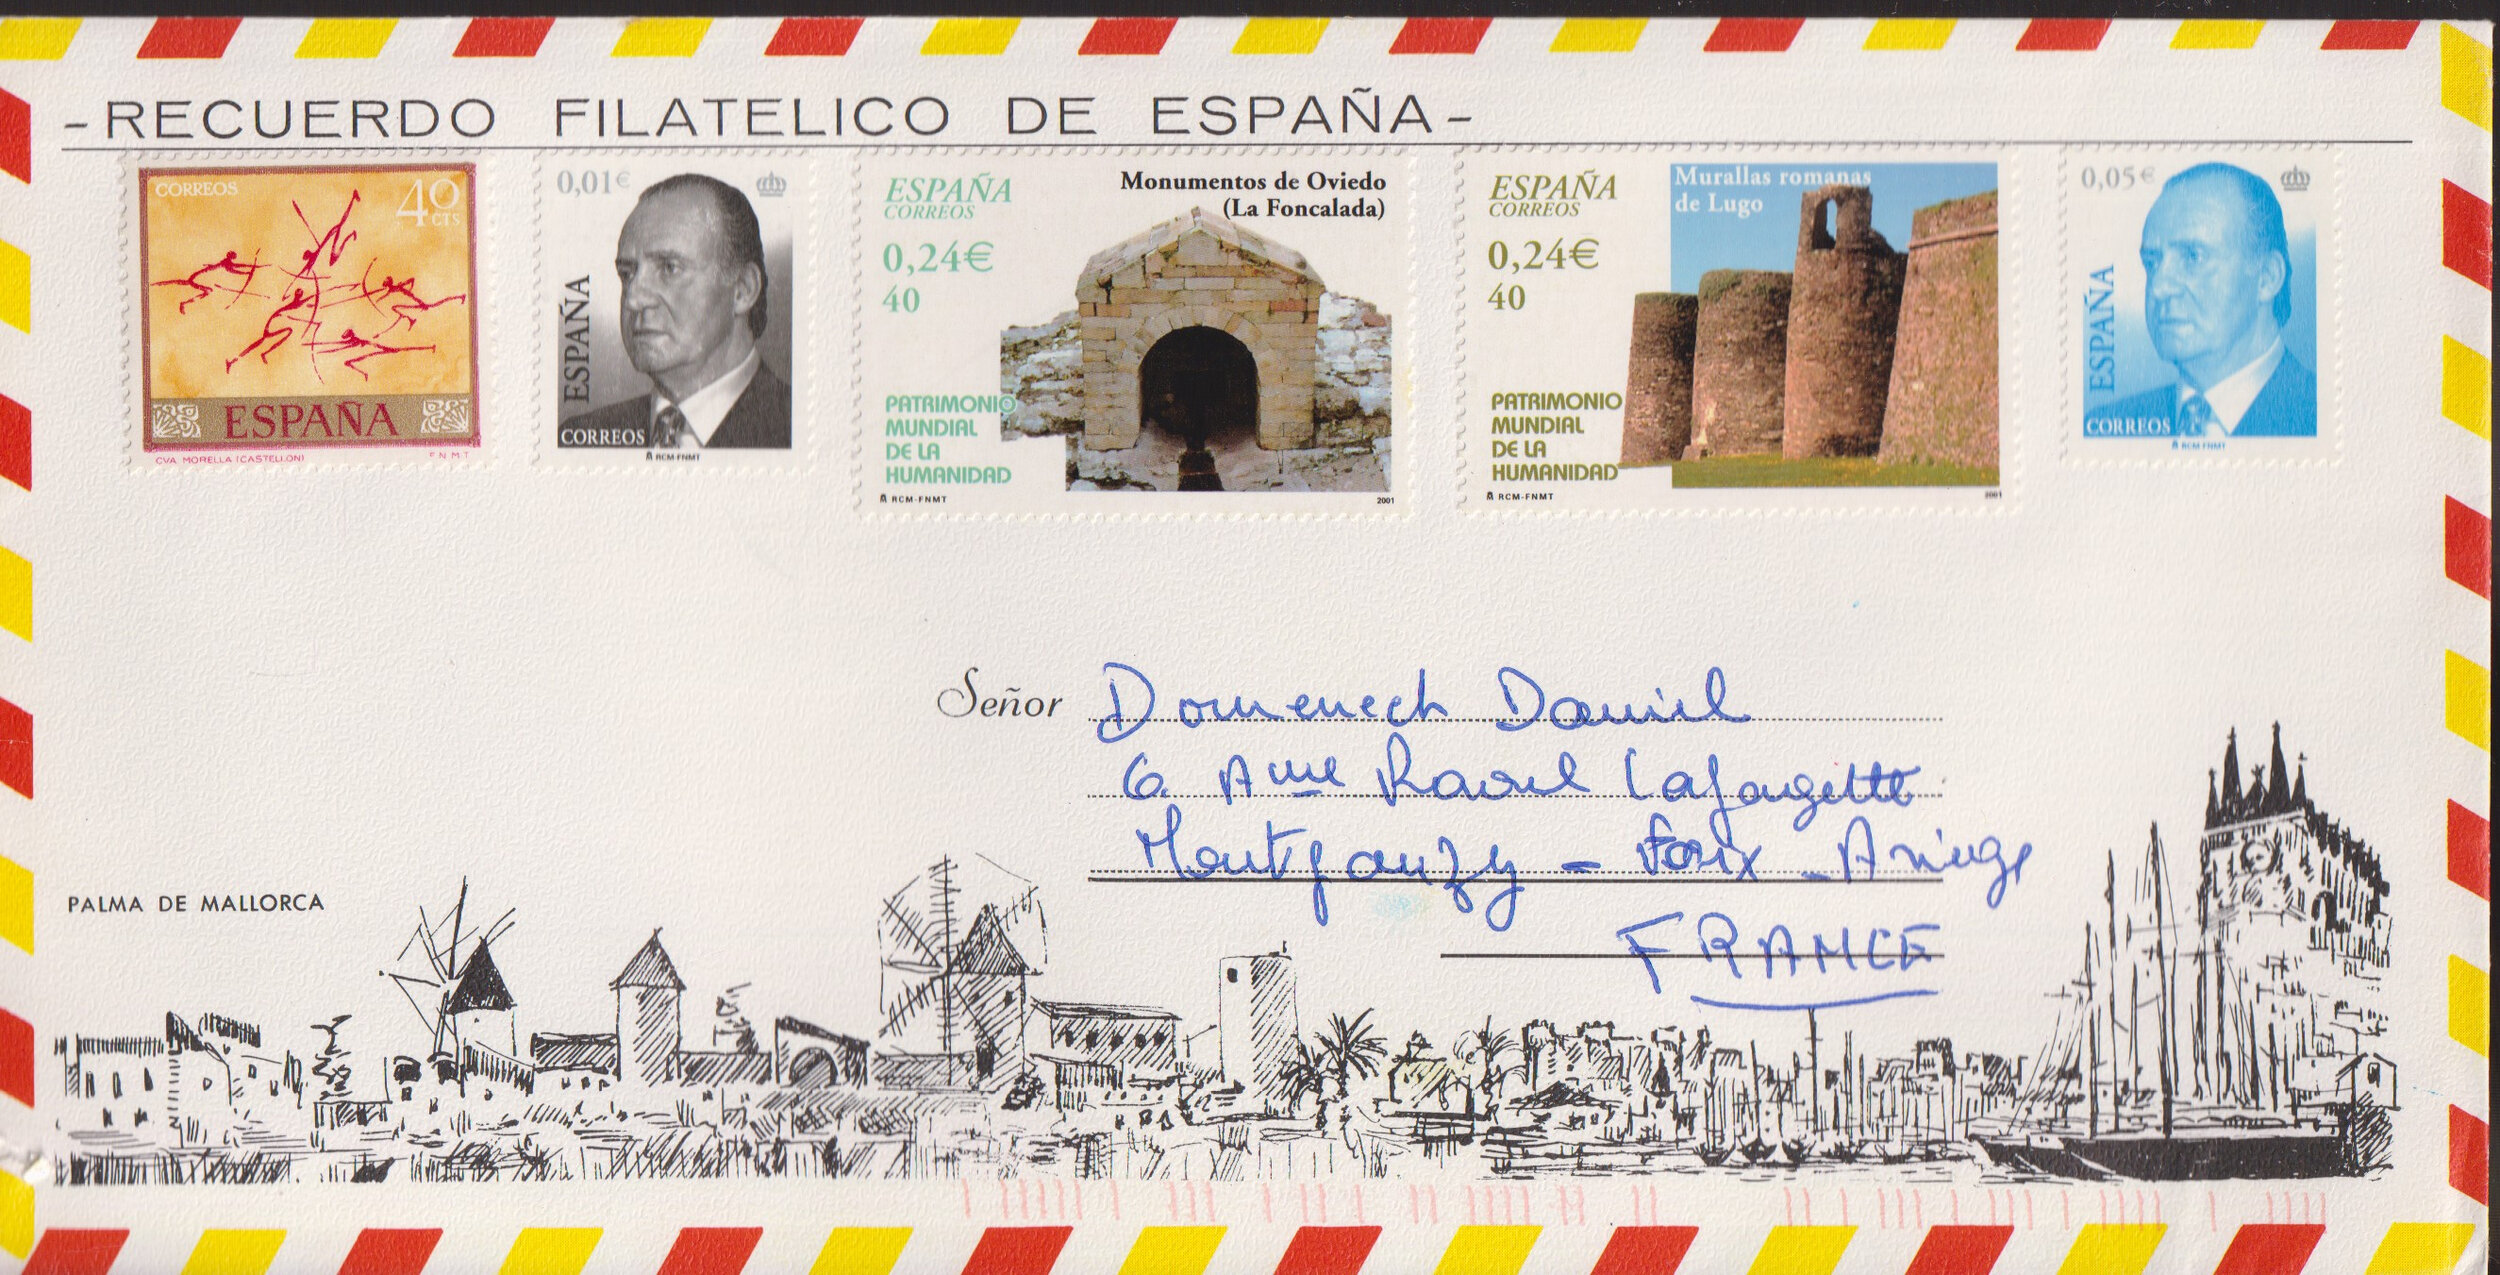 -RECUERDO FILATELICO DE ESPAÑA-
CORREOS
40
CTS
ESPAÑA
CVA. MORELLA (CASTELLON)
F.N.M.T.
0,01€
ESPAÑA
CORREOS
RCM-FNMT
ESPAÑA
CORREOS
Monumentos de Oviedo
(La Foncalada)
0,24€
40
PATRIMONIO
MUNDIAL
DE LA
HUMANIDAD
RCM-FNMT
2001
ESPAÑA
CORREOS
Murallas romanas
de Lugo
0,24€
40
PATRIMONIO
MUNDIAL
DE LA
HUMANIDAD
RCM-FNMT
2001
0,05€
ESPAÑA
CORREOS
RCM-FNMT
Señor Domenech Daniel
6 Raoul Lafagette
Montgauzy - Foix - Ariège
FRANCE
PALMA DE MALLORCA